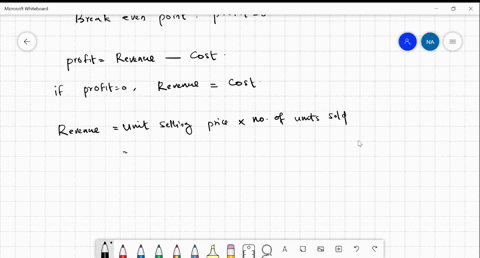 Microsoft Whiteboard
Break even point: profit=0
NA
profit = Revenue — Cost.
if profit=0, Revenue = Cost.
Revenue = Unit selling price × no. of units sold
=
A